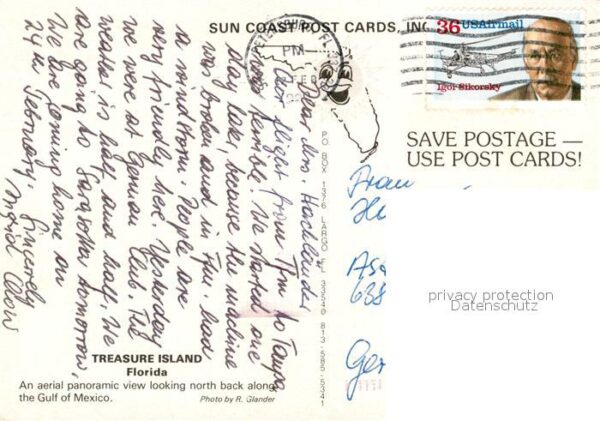 SUN COAST POST CARDS, INC.
PM
FEB
36 USAirmail
Igor Sikorsky
SAVE POSTAGE —
USE POST CARDS!
Dear Mrs.
Our flight from to Tampa
was terrible. We started one
day later, because the machine
was broken and in had
a windstorm. People are
very friendly here. Yesterday
we were at German Club. The
weather is half and half. We
are going to Sarasota tomorrow,
We are coming home on
24th February. Sincerely
Ingrid
P.O. BOX 1376 LARGO, FL 33540 813-585-5341
Fran
He
Ger
privacy protection
Datenschutz
TREASURE ISLAND
Florida
An aerial panoramic view looking north back along
the Gulf of Mexico.
Photo by R. Glander